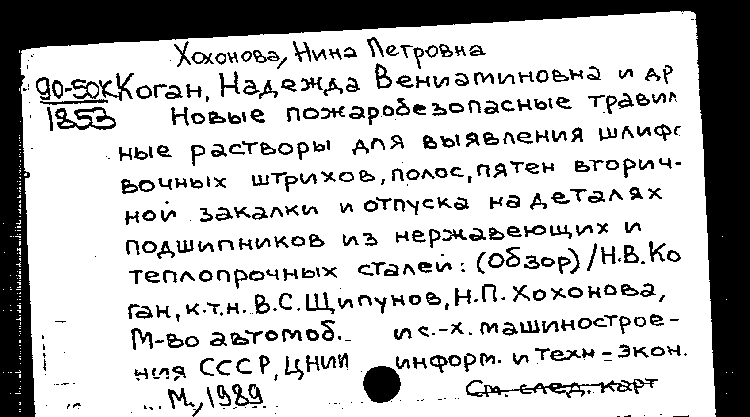 Хохонова, Нина Петровна
90-50к Коган, Надежда Вениаминовна и др
1853 Новые пожаробезопасные травил
ные растворы для выявления шлифо
вочных штрихов, полос, пятен вторич-
ной закалки и отпуска на деталях
подшипников из нержавеющих и
теплопрочных сталей: (Обзор) / Н.В. Ко
ган, к.т.н. В.С. Щипунов, Н.П. Хохонова,
М-во автомоб. и с.-х. машинострое-
ния СССР, ЦНИИ информ. и техн-экон.
М., 1989 См. след. карт